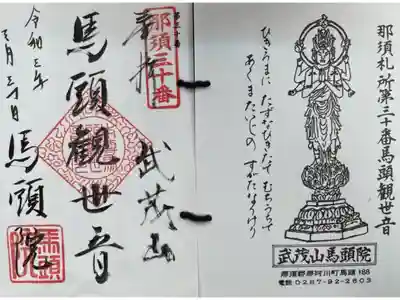 那須札所第三十番馬頭観世音
ひきうまに たずなひきたて むちうちて
あくまたいじの すがたなりけり
武茂山馬頭院
那須郡那珂川町馬頭188
電話 0287-92-2603
那須三十番
奉拝 武茂山
馬頭観世音
馬頭院
令和三年
月三十日
馬頭